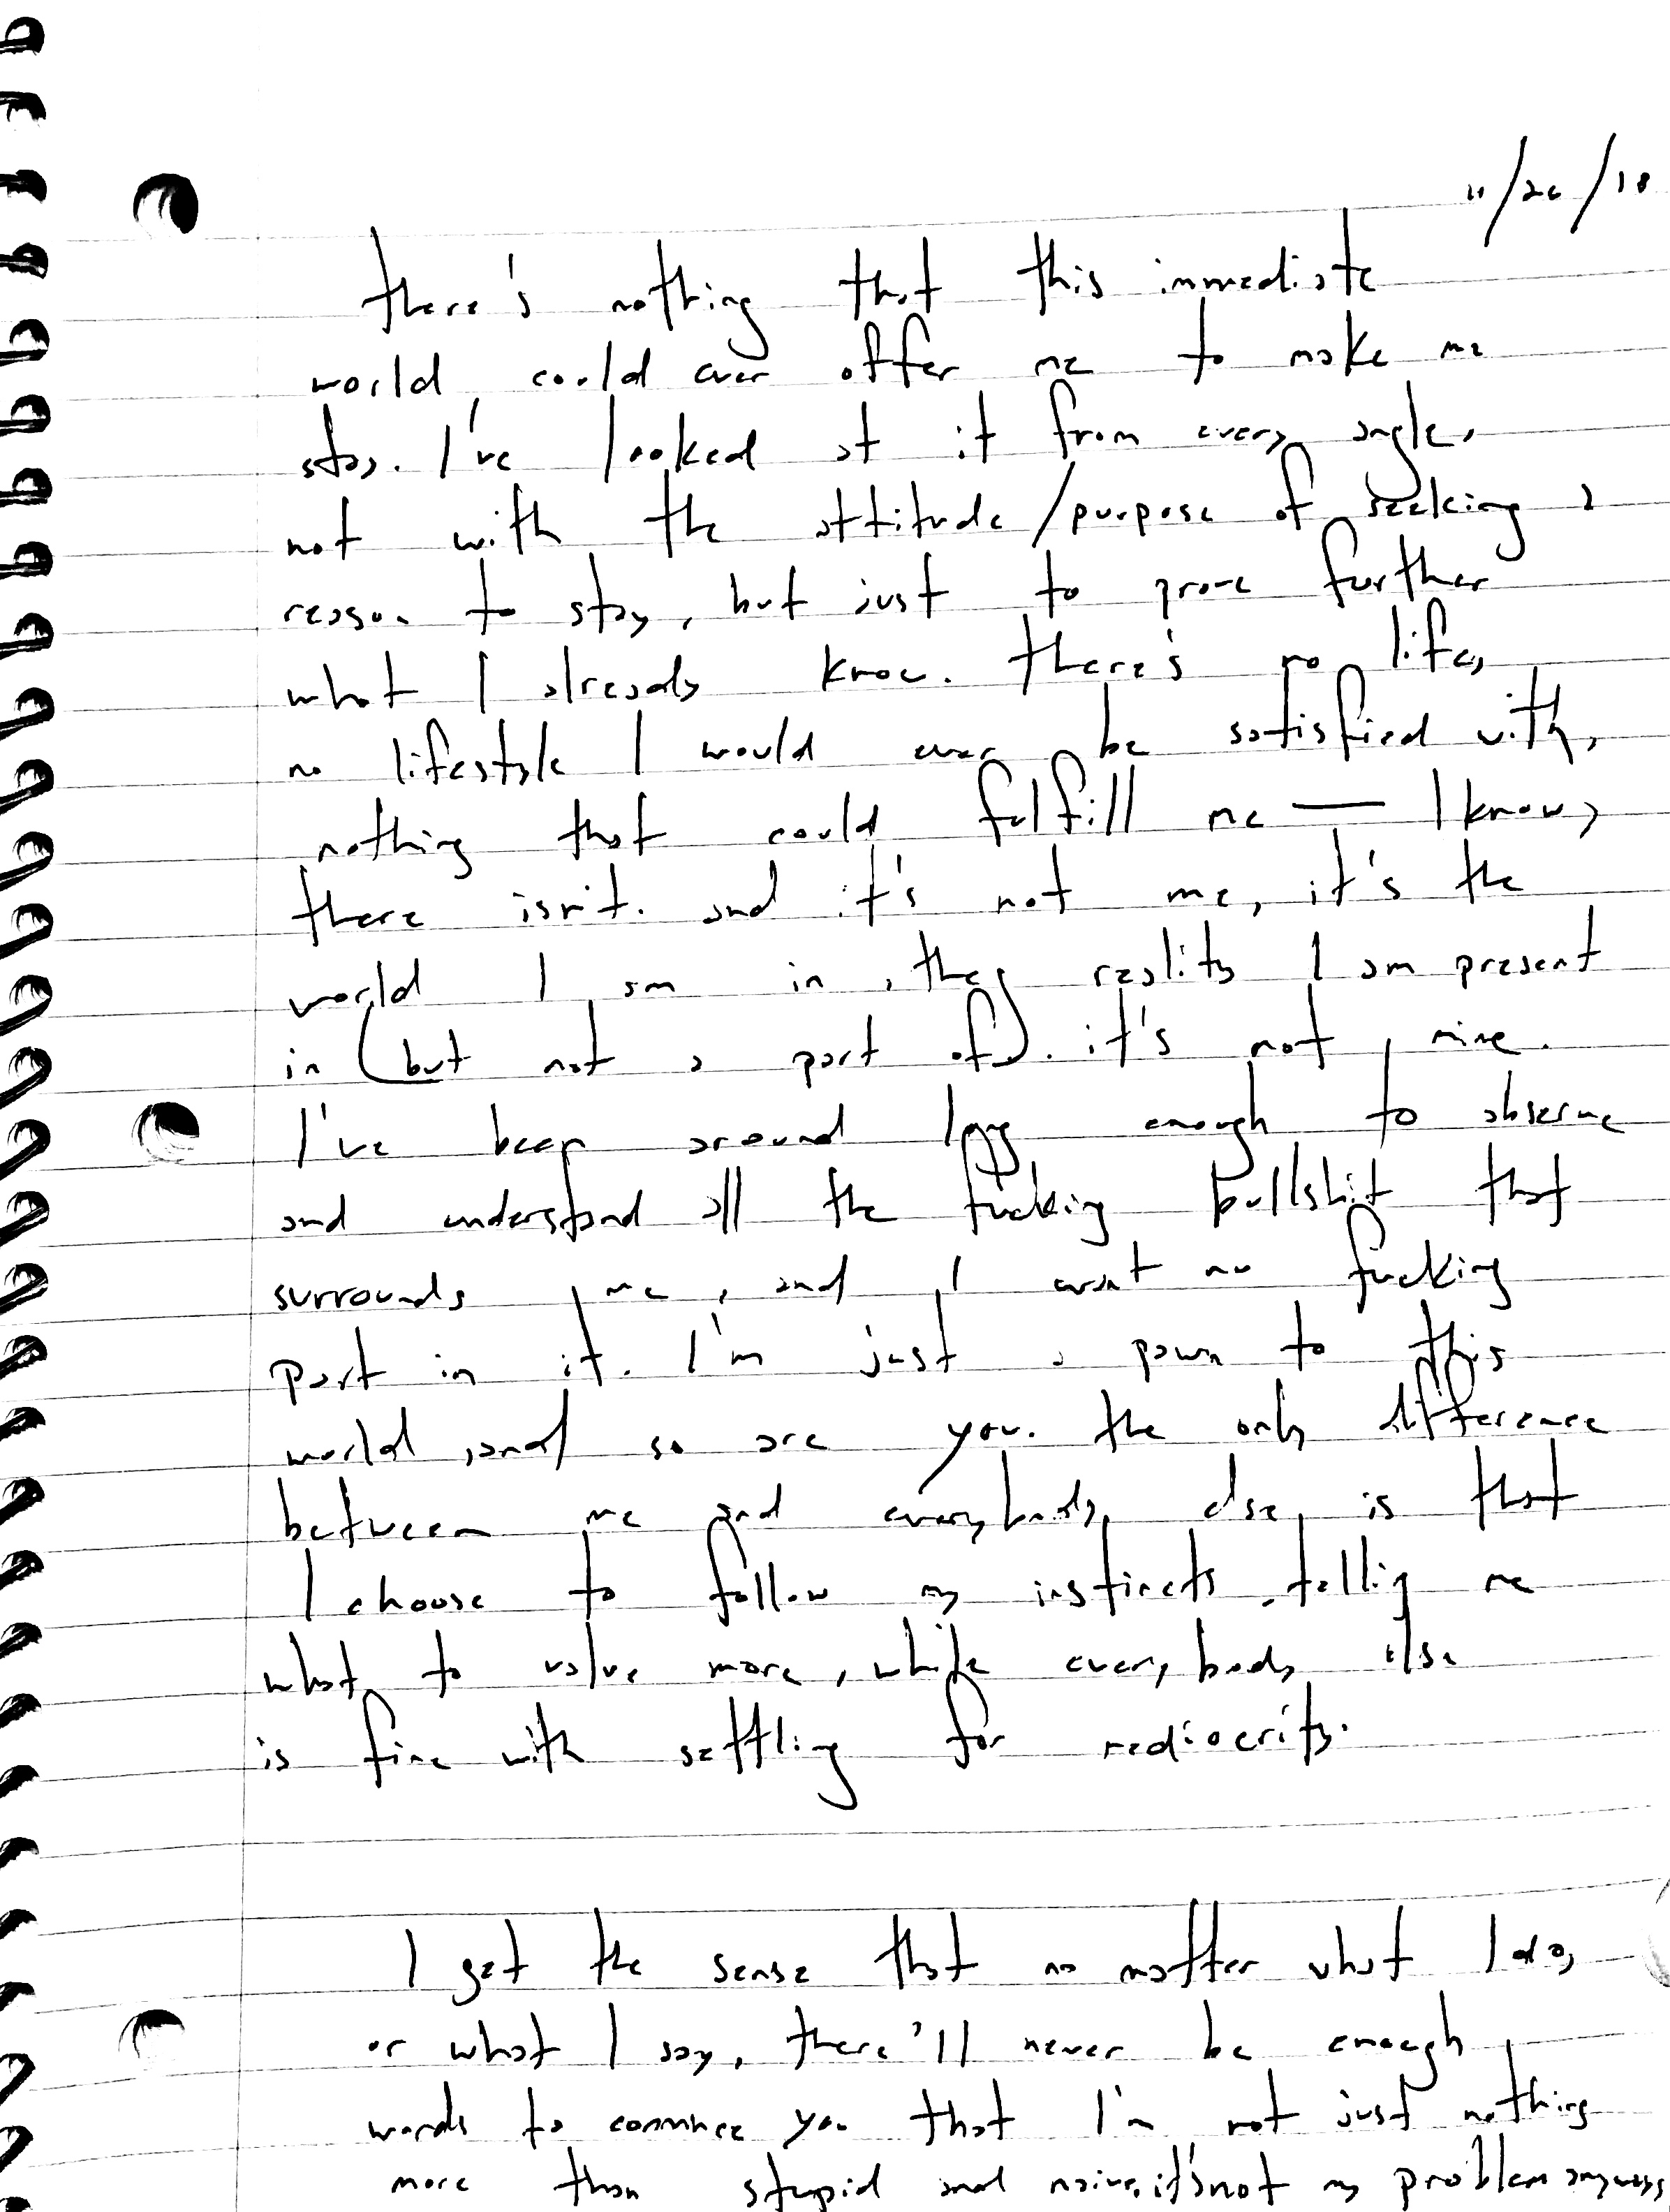 11/26/18
there's nothing that this immediate
world could ever offer me to make me
stay. I've looked at it from every angle,
not with the attitude/purpose of seeking a
reason to stay, but just to prove further
what I already know. there's no life,
no lifestyle I would ever be satisfied with,
nothing that could fulfill me — I know,
there isn't. and it's not me, it's the
world I am in, the reality I am present
in (but not a part of). it's not mine.
I've been around long enough to observe
and understand all the fucking bullshit that
surrounds me, and I want no fucking
part in it. I'm just a pawn to this
world, and so are you. the only difference
between me and everybody else is that
I choose to follow my instincts telling me
what to value more, while everybody else
is fine with settling for mediocrity.
I get the sense that no matter what I do,
or what I say, there'll never be enough
words to convince you that I'm not just nothing
more than stupid and naive, it's not my problem anyways